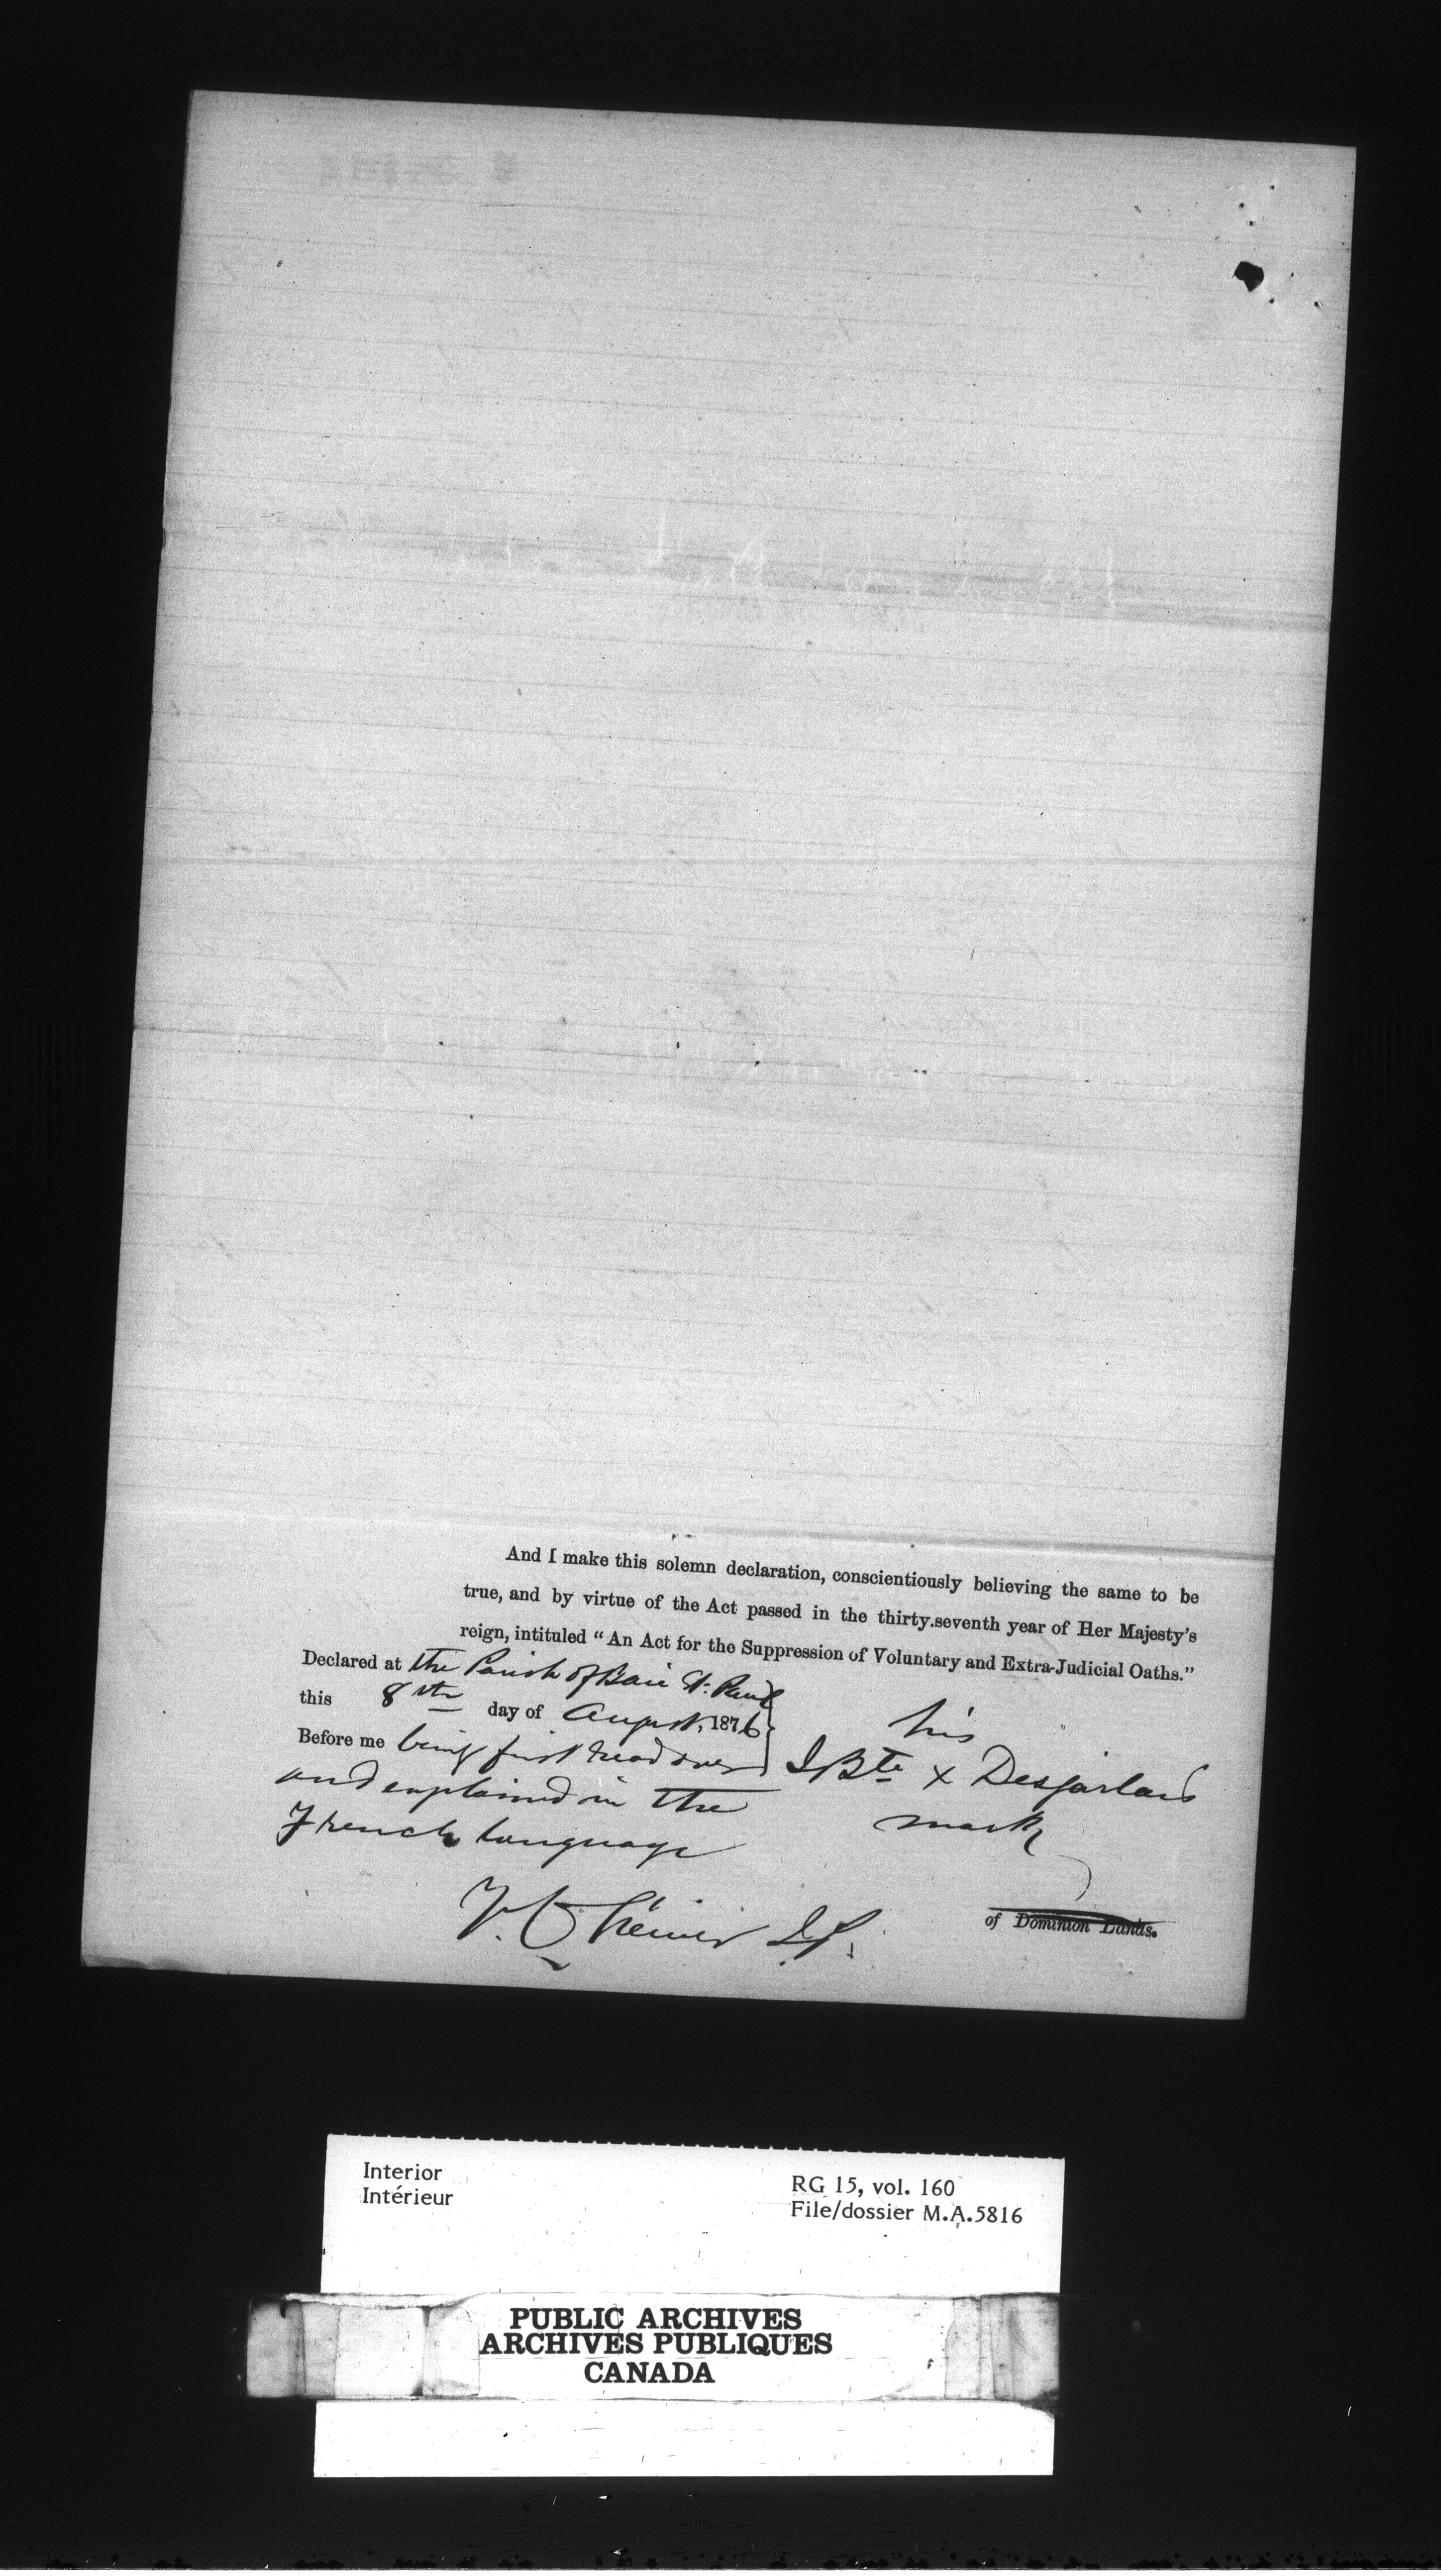 And I make this solemn declaration, conscientiously believing the same to be
true, and by virtue of the Act passed in the thirty.seventh year of Her Majesty's
reign, intituled "An Act for the Suppression of Voluntary and Extra-Judicial Oaths."
Declared at the Parish of Baie St. Paul
this 8th day of August, 1876
Before me being first read over
and explained in the
French language
his
J Bte x Desjarlais
mark
J.P.
of Dominion Lands.
Interior
Intérieur
RG 15, vol. 160
File/dossier M.A.5816
PUBLIC ARCHIVES
ARCHIVES PUBLIQUES
CANADA